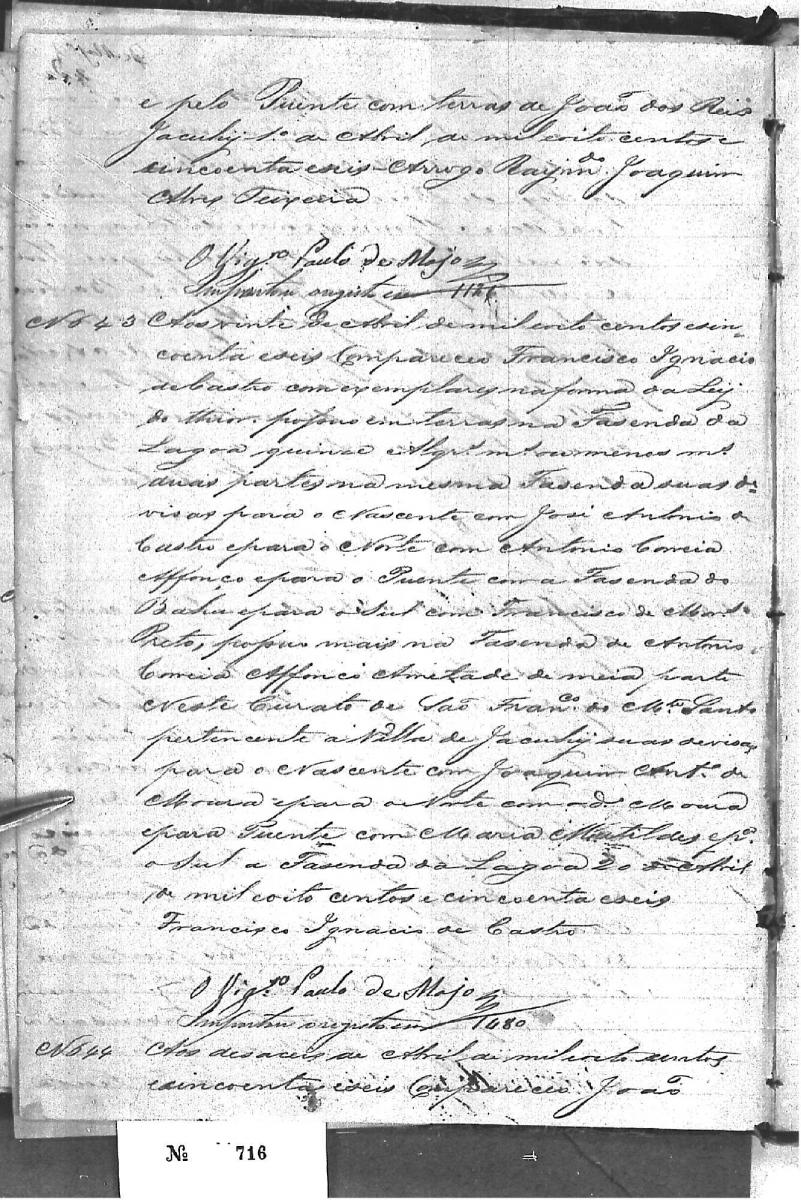 e pelo Puente com terras de João dos Reis
Jacuhy 1º de Abril de mil oito centos e
cincoenta e seis - Arrogo Raymdo Joaquim
Alves Teixeira
O Vigro Paulo de Mojo
Importou o registo em
No 43 Aos vinte de Abril de mil oito centos e sin=
coenta e seis Compareceo Francisco Ignacio
de Castro com exemplares na forma da Ley
do theor. possuo em terras na Fasenda da
Lagoa quinze Alqrs ms ou menos ms
duas partes na mesma Fasenda suas de=
visas para o Nascente com José Antonio de
Castro e para o Norte com Antonio Correia
Affonço e para o Puente com a Fasenda do
Bahu e para o Sul com Francisco de
Preto, possuo mais na Fasenda de Antonio
Correia Affonço Ametade de meia parte
Neste Curato de São Franco do Mte Santo
pertencente a Villa de Jacuhy suas devisas
para o Nascente com Joaquim Anto de
Moura e para o Norte com o do Moura
e para Puente com Maria Matildes e pa
o Sul a Fasenda da Lagoa 20 de Abril
de mil oito centos e cincoenta e seis
Francisco Ignacio de Castro
O Vigro Paulo de Mojo
Importou o registo em 1480
No 44 Aos desaceis de Abril de mil oito centos
e cincoenta e seis Compareceo João
No 716